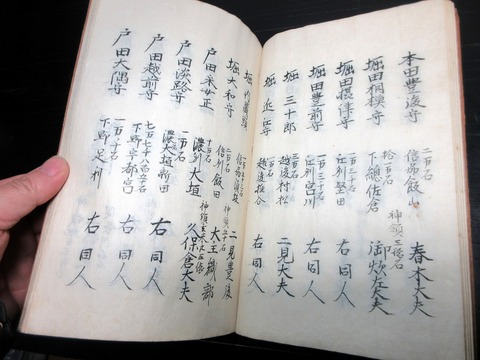 本田豊後守 二百石 信州飯山 春木大夫
堀田相模守 拾石 下総佐倉 神領三拾石 御炊左大夫
堀田摂津守 一百三十石 江州堅田 右同人
堀田豊前守 一百三十石 江州宮川 右同人
堀三十郎 三百石 越後村松 二見大夫
堀近江守 一百石 越後椎谷 右同人
堀 一百石 信州須坂 二見豊後
堀大和守 二百石 信州飯田 神領二十石 大王織部
戸田采女正 十百石 濃州大垣 久保倉大夫
戸田淡路守 一百石 濃州大垣新田 右同人
戸田越前守 七百七十八石 下野宇都宮 右同人
戸田大隅守 一百一十石 下野足利 右同人